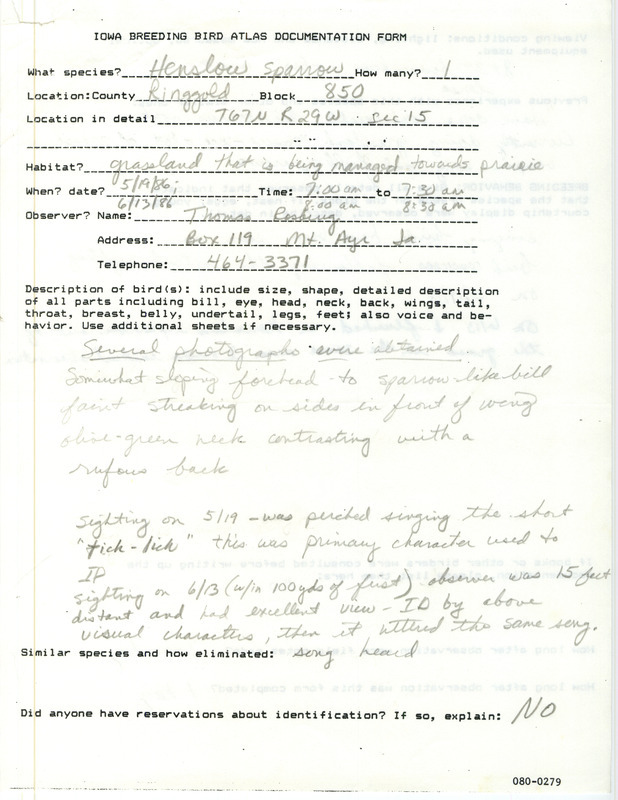 IOWA BREEDING BIRD ATLAS DOCUMENTATION FORM
What species? Henslow Sparrow How many? 1
Location:County Ringgold Block 850
Location in detail T67N R29W sec 15
Habitat? grassland that is being managed towards prairie
When? date? 5/19/86; Time: 7:00 am to 7:30 am
6/13/86 8:00 am 8:30 am
Observer? Name: Thomas Rosburg
Address: Box 119 Mt. Ayr Ia.
Telephone: 464-3371
Description of bird(s): include size, shape, detailed description
of all parts including bill, eye, head, neck, back, wings, tail,
throat, breast, belly, undertail, legs, feet; also voice and be-
havior. Use additional sheets if necessary.
Several photographs were obtained
Somewhat sloping forehead to sparrow-like bill
faint streaking on sides in front of wing
olive-green neck contrasting with a
rufous back
Sighting on 5/19 - was perched singing the short
"tick-lick" this was primary character used to
ID
Sighting on 6/13 (w/in 100yds of first) observer was 15 feet
distant and had excellent view - ID by above
visual characters, then it uttered the same song.
Similar species and how eliminated: song heard
Did anyone have reservations about identification? If so, explain: NO
080-0279